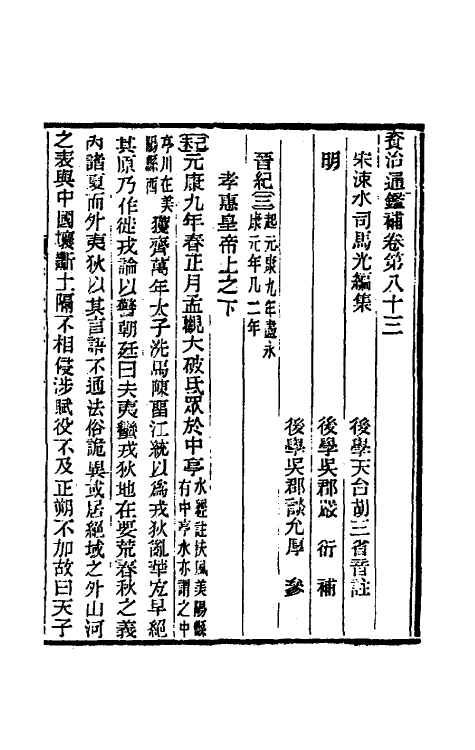 資治通鑑補卷第八十三
宋涑水司馬光編集
後學天台胡三省音註
明
後學吳郡嚴 衍 補
後學吳郡談允厚 參
晉紀三起元康九年盡永康元年凡二年
孝惠皇帝上之下
己元康九年春正月孟觀大破氐眾於中亭水經註扶風美陽縣有中亭水亦謂之中
亭川在美陽縣西獲齊萬年太子洗馬陳留江統以爲戎狄亂華宜早絕
其原乃作徙戎論以警朝廷曰夫夷蠻戎狄地在要荒春秋之義
內諸夏而外夷狄以其言語不通法俗詭異或居絕域之外山河
之表與中國壤斷土隔不相侵涉賦役不及正朔不加故曰天子